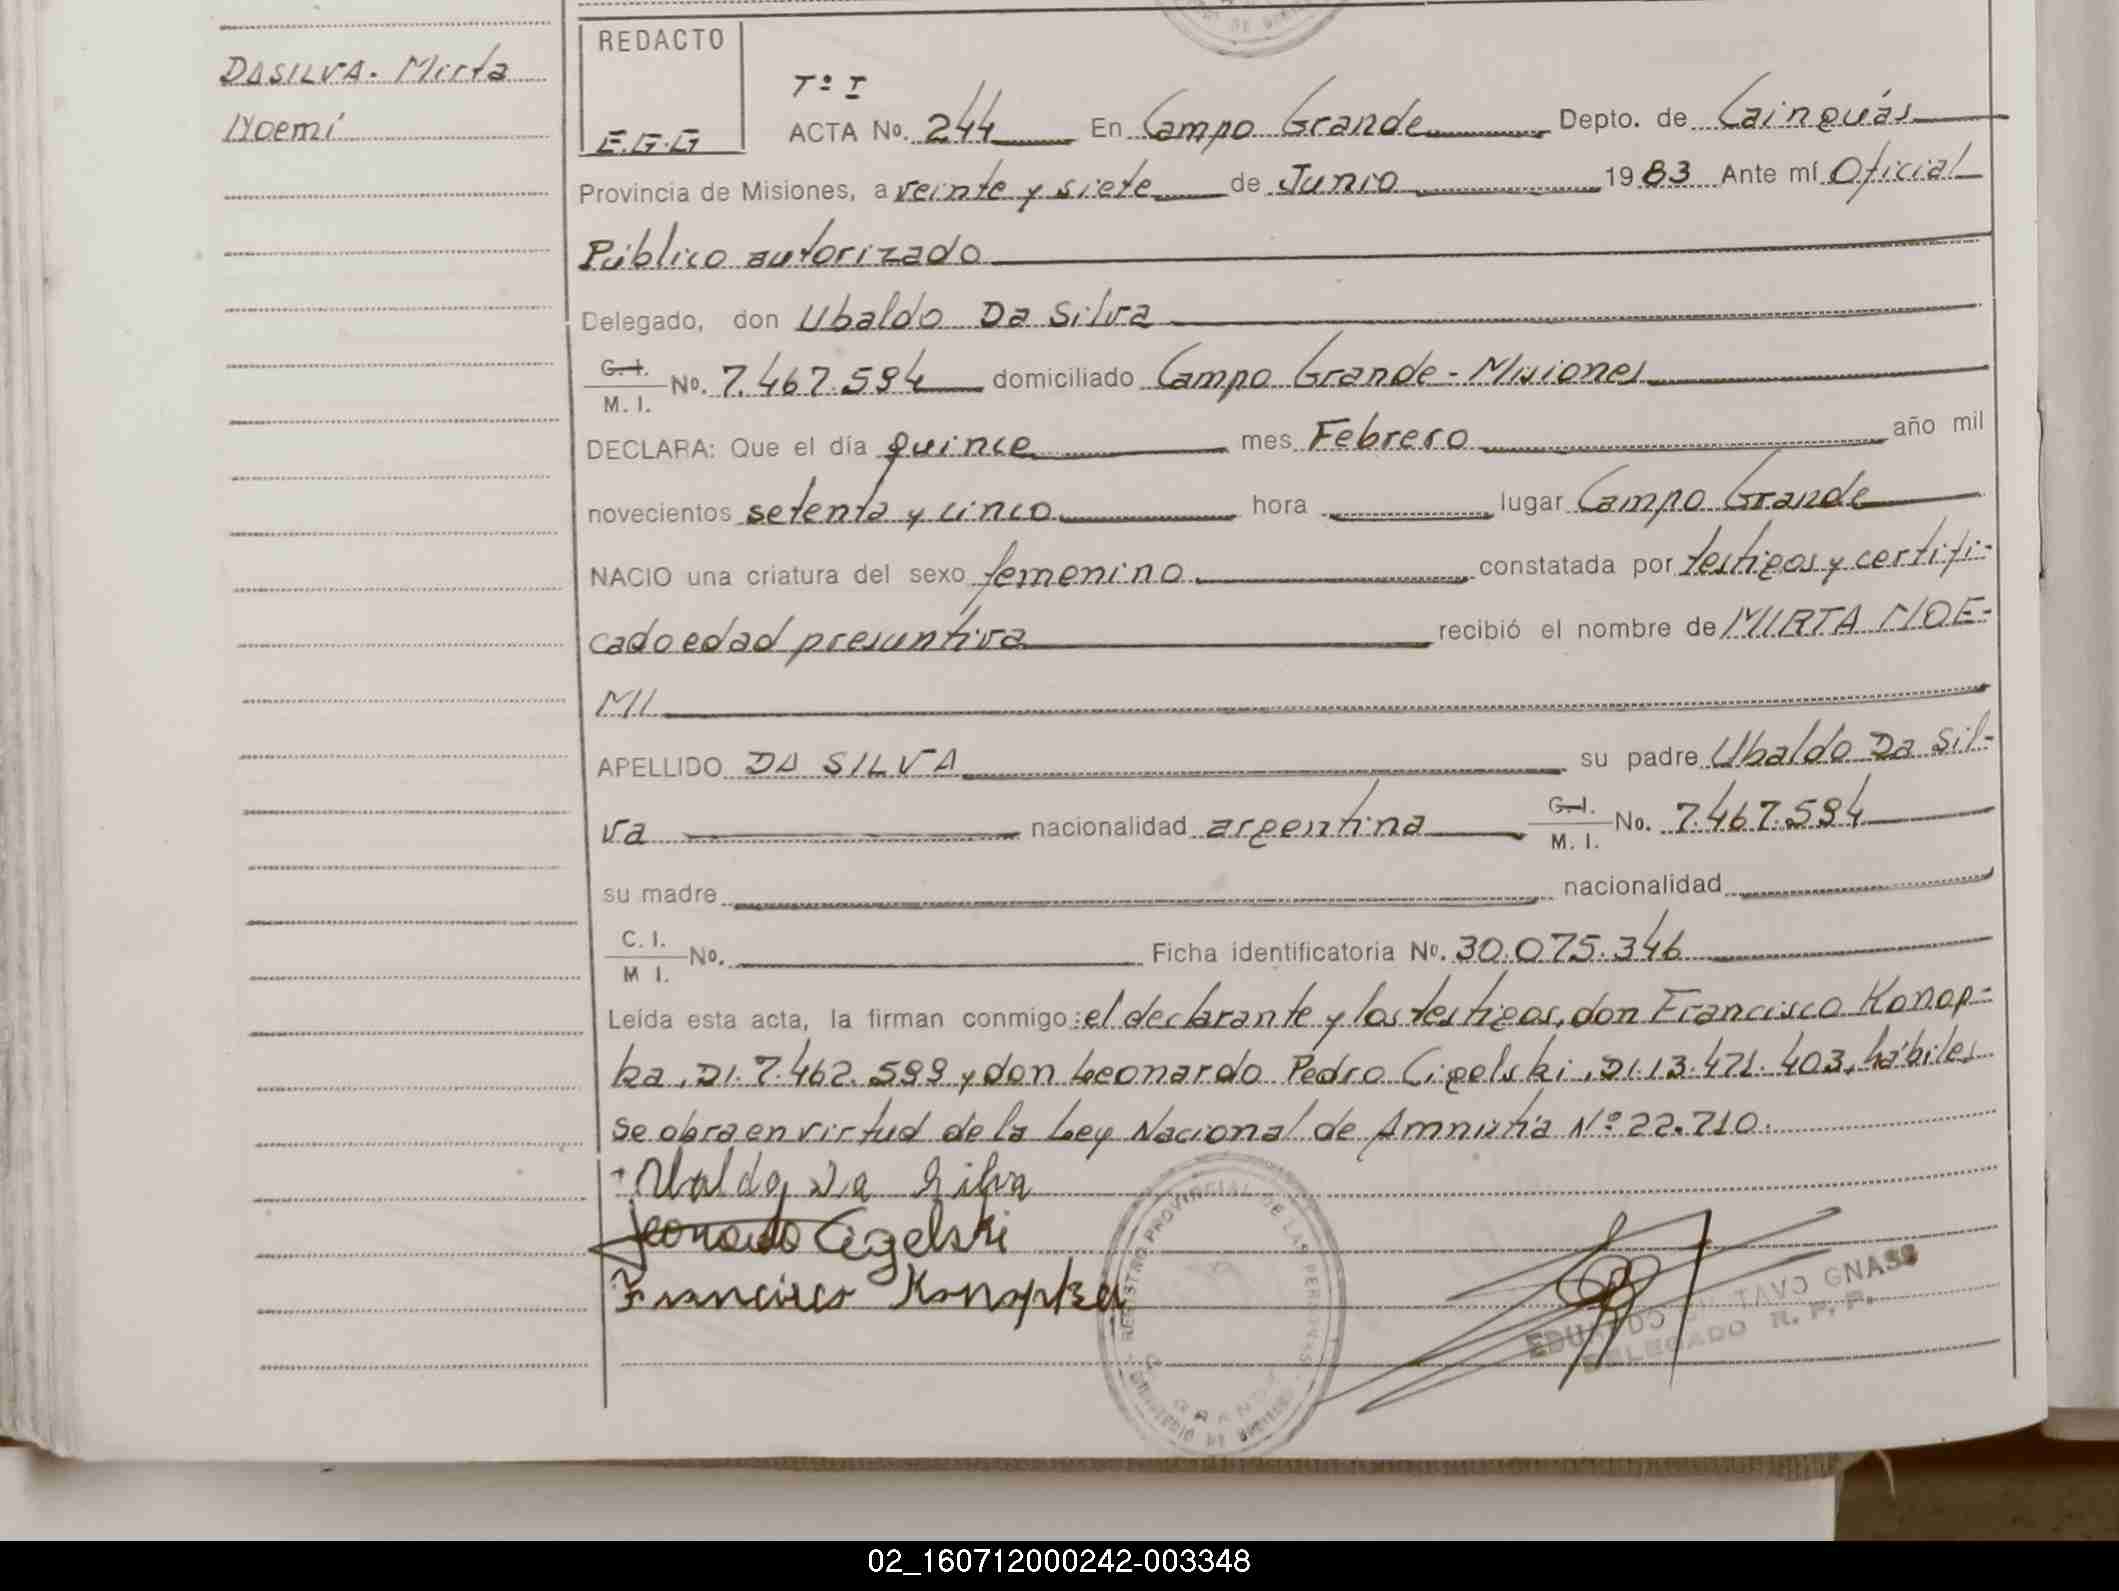 DASILVA. Mirta
Noemí
REDACTO
E.G.G
Tº I
ACTA No. 244 En Campo Grande Depto. de Cainguás
Provincia de Misiones, a veinte y siete de Junio 1983 Ante mí Oficial
Público autorizado
Delegado, don Ubaldo Da Silva
C.I. M. I. No. 7.467.594 domiciliado Campo Grande - Misiones
DECLARA: Que el día quince mes Febrero año mil
novecientos setenta y cinco hora lugar Campo Grande
NACIO una criatura del sexo femenino constatada por testigos y certifi-
cado edad presuntiva recibió el nombre de MIRTA NOE-
MI
APELLIDO DA SILVA su padre Ubaldo Da Sil-
va nacionalidad argentina C.I. M. I. No. 7.467.594
su madre nacionalidad
C. I. M I. No. Ficha identificatoria No. 30.075.346
Leída esta acta, la firman conmigo: el declarante y los testigos, don Francisco Konop-
ka, DI. 7.462.599 y don Leonardo Pedro Cigelski, DI. 13.471.403, hábiles
se obra en virtud de la Ley Nacional de Amnistía Nº 22.710.
Ubaldo Da Silva
Leonardo Cigelski
Francisco Konopka
REGISTRO PROVINCIAL DE LAS PERSONAS
EDUARDO GUSTAVO GNASS
DELEGADO R. P. P.
02_160712000242-003348